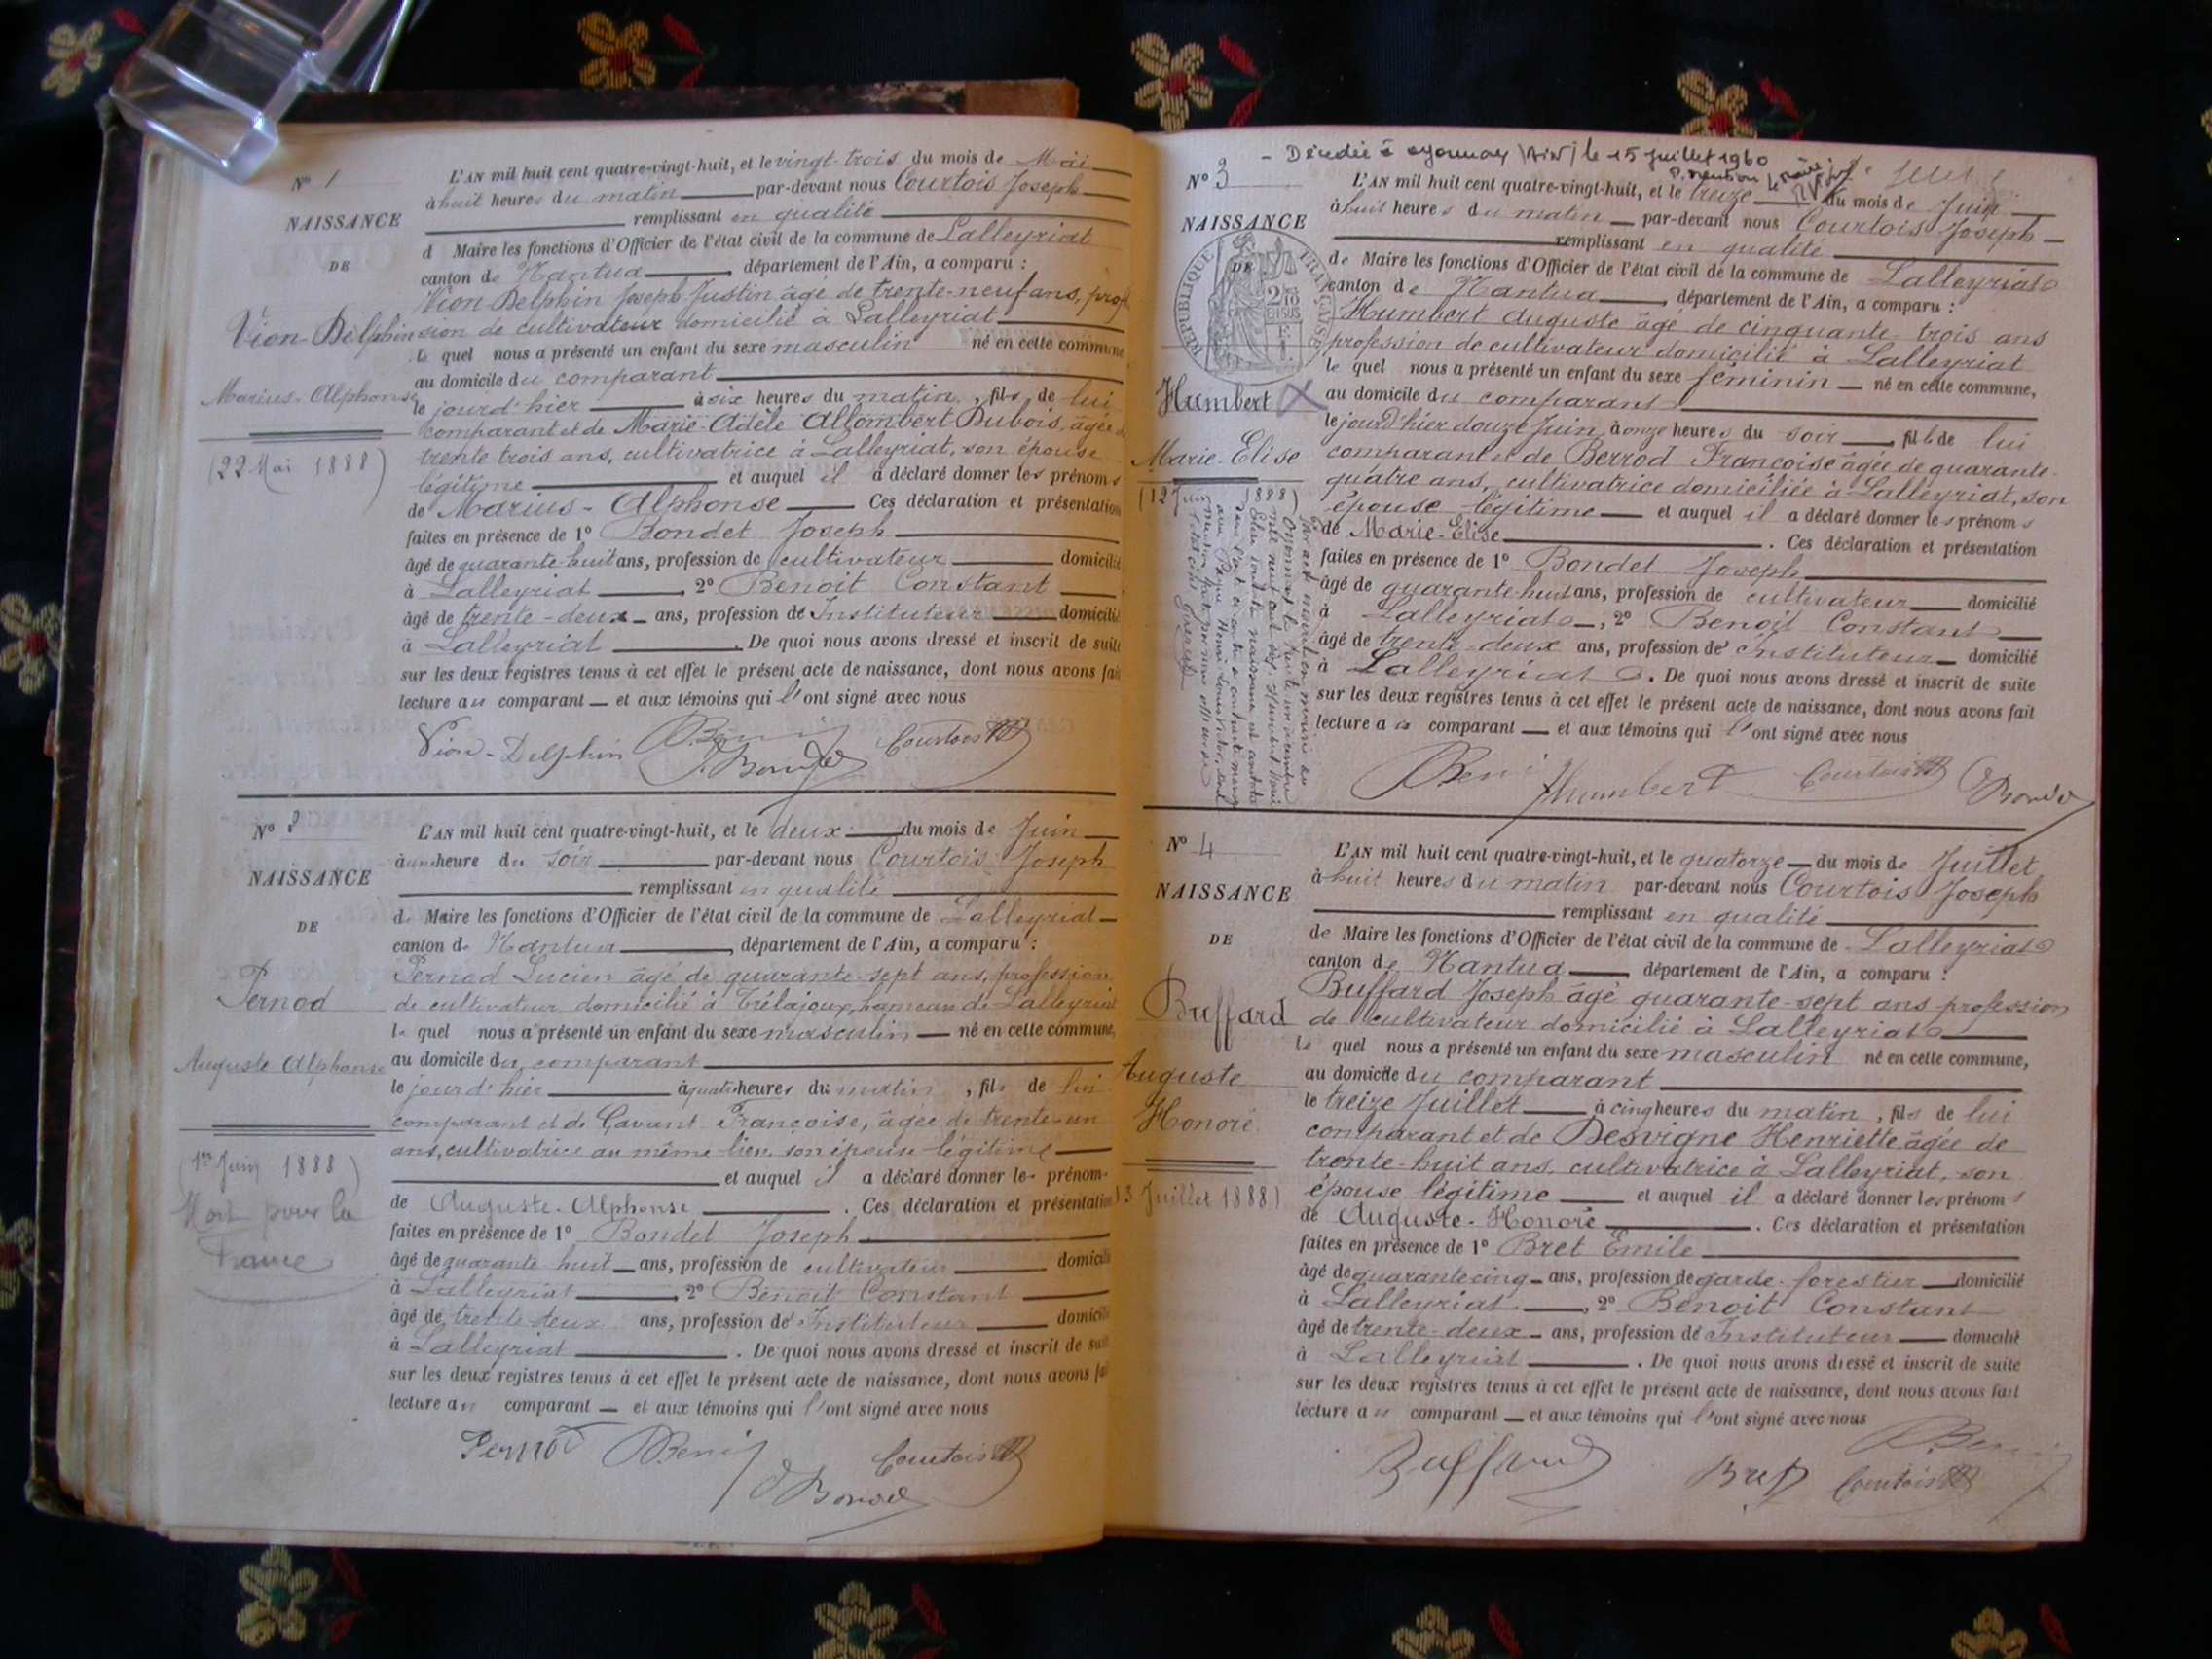 N° 1
NAISSANCE
DE
Vion-Delphin
Marius-Alphonse
(22 Mai 1888)
L'AN mil huit cent quatre-vingt-huit, et le vingt-trois du mois de Mai
à huit heures du matin par-devant nous Courtois Joseph
remplissant en qualité
d Maire les fonctions d'Officier de l'état civil de la commune de Lalleyriat
canton de Nantua, département de l'Ain, a comparu :
Vion-Delphin Joseph Justin âgé de trente-neuf ans, profes
sion de cultivateur domicilié à Lalleyriat
le quel nous a présenté un enfant du sexe masculin né en cette commune
au domicile du comparant
le jourd'hier à six heures du matin, fils de lui
comparant et de Marie-Adèle Allombert Dubois, âgée de
trente trois ans, cultivatrice à Lalleyriat, son épouse
légitime et auquel il a déclaré donner les prénoms
de Marius-Alphonse Ces déclaration et présentation
faites en présence de 1° Bondet Joseph
âgé de quarante-huit ans, profession de cultivateur domicilié
à Lalleyriat, 2° Benoit Constant
âgé de trente-deux ans, profession de Instituteur domicilié
à Lalleyriat. De quoi nous avons dressé et inscrit de suite
sur les deux registres tenus à cet effet le présent acte de naissance, dont nous avons fait
lecture au comparant et aux témoins qui l'ont signé avec nous
Vion-Delphin Courtois
N° 2
NAISSANCE
DE
Pernod
Auguste Alphonse
(1er Juin 1888)
Mort pour la
France
L'AN mil huit cent quatre-vingt-huit, et le deux du mois de Juin
à une heure du soir par-devant nous Courtois Joseph
remplissant en qualité
de Maire les fonctions d'Officier de l'état civil de la commune de Lalleyriat
canton de Nantua, département de l'Ain, a comparu :
Pernod Lucien âgé de quarante-sept ans, profession
de cultivateur domicilié à Trélajoux, hameau de Lalleyriat
le quel nous a présenté un enfant du sexe masculin né en cette commune,
au domicile du comparant
le jourd'hier à quatre heures du matin, fils de lui
comparant et de Gavant Françoise, âgée de trente-un
ans, cultivatrice au même lieu son épouse légitime
et auquel il a déclaré donner les prénoms
de Auguste-Alphonse. Ces déclaration et présentation
faites en présence de 1° Bondet Joseph
âgé de quarante huit ans, profession de cultivateur domicilié
à Lalleyriat, 2° Benoit Constant
âgé de trente-deux ans, profession de Instituteur domicilié
à Lalleyriat. De quoi nous avons dressé et inscrit de suite
sur les deux registres tenus à cet effet le présent acte de naissance, dont nous avons fait
lecture au comparant et aux témoins qui l'ont signé avec nous
Pernod Courtois
- Décédée à Oyonnax (Ain) le 15 juillet 1960
N° 3
NAISSANCE
DE
RÉPUBLIQUE FRANÇAISE
Humbert
Marie-Elise
(12 Juin 1888)
L'AN mil huit cent quatre-vingt-huit, et le treize du mois de Juin
à huit heures du matin par-devant nous Courtois Joseph
remplissant en qualité
de Maire les fonctions d'Officier de l'état civil de la commune de Lalleyriat
canton de Nantua, département de l'Ain, a comparu :
Humbert Auguste âgé de cinquante-trois ans
profession de cultivateur domicilié à Lalleyriat
le quel nous a présenté un enfant du sexe féminin né en cette commune,
au domicile du comparant
le jourd'hier douze Juin à onze heures du soir, fille de lui
comparant et de Berrod Françoise âgée de quarante-
quatre ans, cultivatrice domiciliée à Lalleyriat, son
épouse légitime et auquel il a déclaré donner les prénoms
de Marie-Elise. Ces déclaration et présentation
faites en présence de 1° Bondet Joseph
âgé de quarante-huit ans, profession de cultivateur domicilié
à Lalleyriat, 2° Benoit Constant
âgé de trente-deux ans, profession d'instituteur domicilié
à Lalleyriat. De quoi nous avons dressé et inscrit de suite
sur les deux registres tenus à cet effet le présent acte de naissance, dont nous avons fait
lecture au comparant et aux témoins qui l'ont signé avec nous
Humbert Courtois
N° 4
NAISSANCE
DE
Buffard
Auguste
Honoré
13 Juillet 1888)
L'AN mil huit cent quatre-vingt-huit, et le quatorze du mois de Juillet
à huit heures du matin par-devant nous Courtois Joseph
remplissant en qualité
de Maire les fonctions d'Officier de l'état civil de la commune de Lalleyriat
canton de Nantua, département de l'Ain, a comparu :
Buffard Joseph âgé quarante-sept ans profession
de cultivateur domicilié à Lalleyriat
le quel nous a présenté un enfant du sexe masculin né en cette commune,
au domicile du comparant
le treize Juillet à cinq heures du matin, fils de lui
comparant et de Desvigne Henriette âgée de
trente-huit ans, cultivatrice à Lalleyriat, son
épouse légitime et auquel il a déclaré donner les prénoms
de Auguste-Honoré. Ces déclaration et présentation
faites en présence de 1° Bret Emile
âgé de quarante cinq ans, profession de garde-forestier domicilié
à Lalleyriat, 2° Benoit Constant
âgé de trente-deux ans, profession de Instituteur domicilié
à Lalleyriat. De quoi nous avons dressé et inscrit de suite
sur les deux registres tenus à cet effet le présent acte de naissance, dont nous avons fait
lecture au comparant et aux témoins qui l'ont signé avec nous
Buffard Bret Courtois